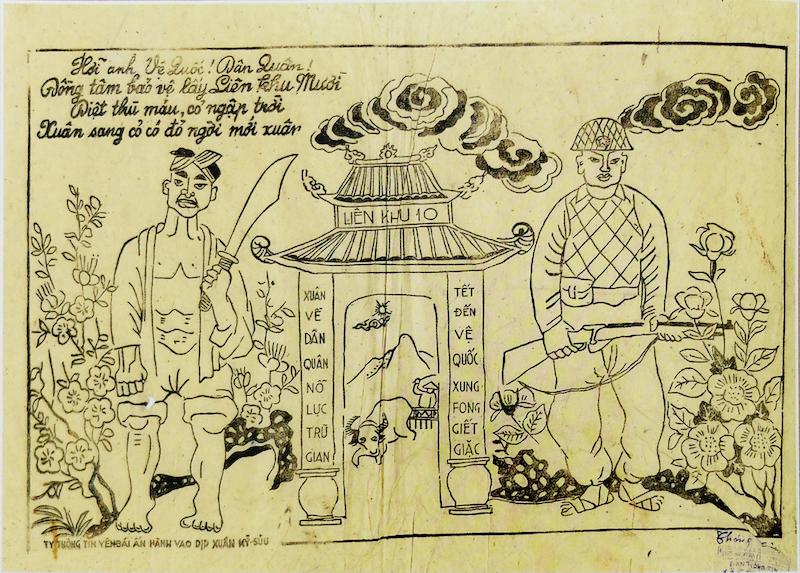 Hỡi anh Vệ Quốc! Dân Quân!
Đồng tâm bảo vệ lấy Liên khu Mười
Diệt thù máu, cỏ ngập trời
Xuân sang cỏ có đỏ ngời mới xuân
LIÊN KHU 10
XUÂN
VỀ
DÂN
QUÂN
NỖ
LỰC
TRỪ
GIAN
TẾT
ĐẾN
VỆ
QUỐC
XUNG
FONG
GIẾT
GIẶC
TY THÔNG TIN YÊNBÁI ẤN HÀNH VAO DỊP XUÂN KỶ-SỬU